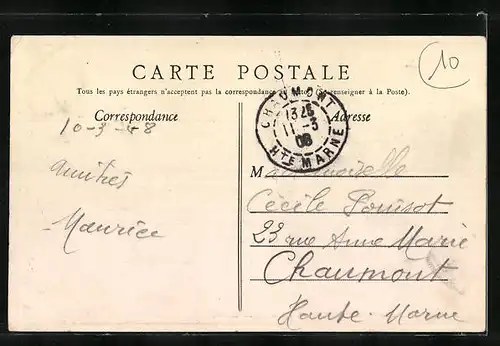 10
CARTE POSTALE
Tous les pays étrangers n'acceptent pas la correspondance (Se renseigner à la Poste).
Correspondance
Adresse
CHAUMONT
11-3
08
HTE MARNE
10-3-48
amitiés
Maurice
Mademoiselle
Cécile Poussot
23 rue Anne Marie
Chaumont
Haute-Marne